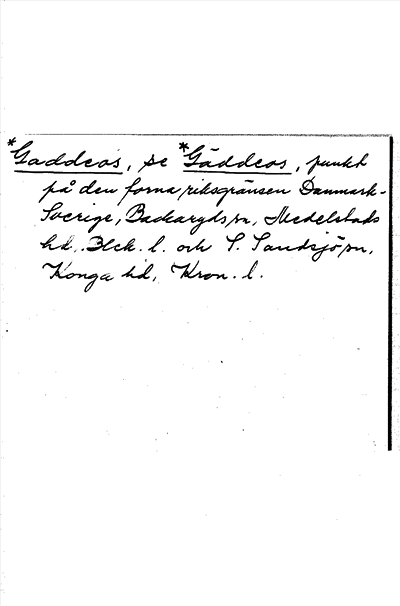 *Gaddeos, se *Gäddeos, punkt
på den forna riksgränsen Danmark-
Sverige, Backaryds sn, Medelstads
hd, Blek. l. och S. Sandsjö sn,
Konga hd, Kron. l.